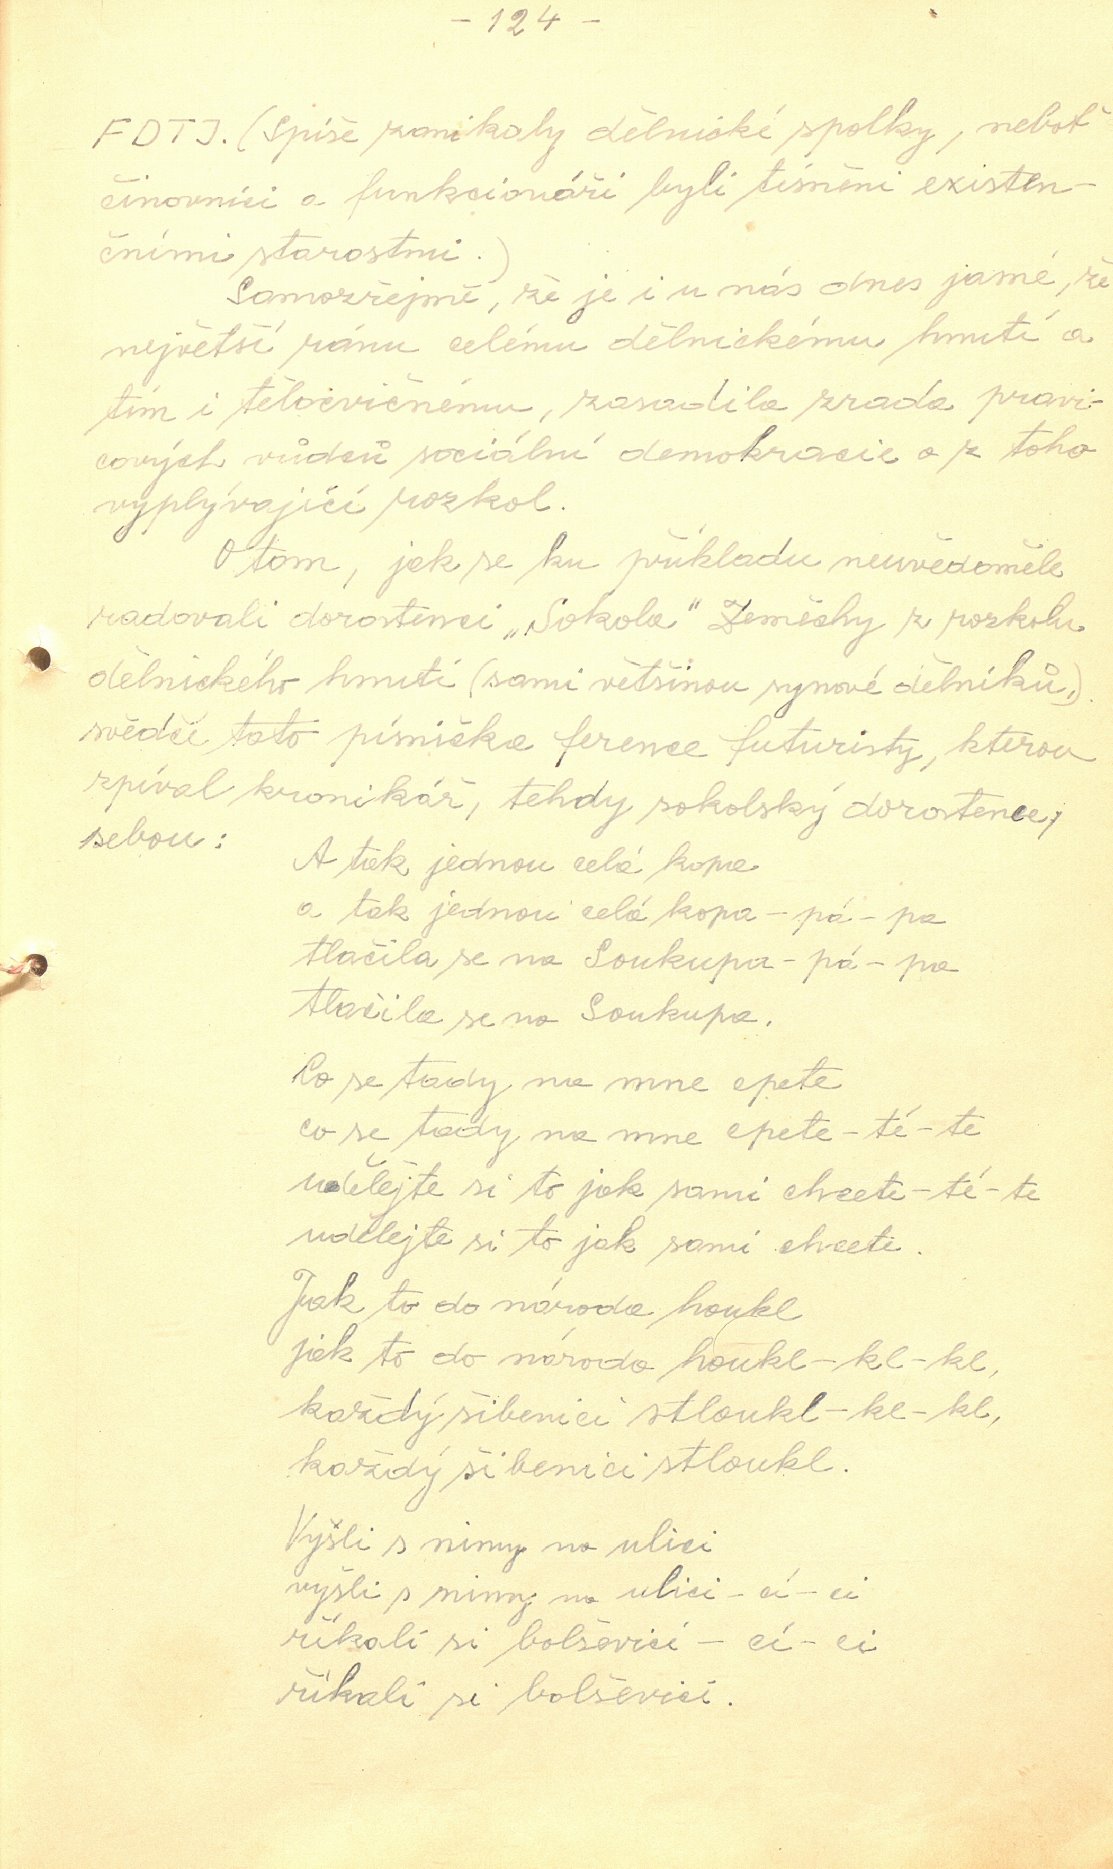 - 124 -
FDTJ. (Spíše zanikaly dělnické spolky, neboť
činovníci a funkcionáři byli tísněni existen-
čními starostmi.)
Samozřejmě, že je i u nás dnes jasné, že
největší ránu celému dělnickému hnutí a
tím i tělocvičnému, zasadila zrada pravi-
cových vůdců sociální demokracie a z toho
vyplývající rozkol.
O tom, jak se ku příkladu neuvědoměle
radovali dorostenci „Sokola" Zeměchy z rozkolu
dělnického hnutí (sami většinou synové dělníků,)
svědčí tato písnička ference futuristy, kterou
zpíval kronikář, tehdy sokolský dorostenec,
sebou:
A tak jednou celá kopa
a tak jednou celá kopa - pá - pa
tlačila se na Soukupa - pá - pa
tlačila se na Soukupa.
Co se tady na mne cpete
co se tady na mne cpete - té - te
udělejte si to jak sami chcete - té - te
udělejte si to jak sami chcete.
Jak to do národa houkl
jak to do národa houkl - kl - kl,
každý šibenici stloukl - kl - kl,
každý šibenici stloukl.
Vyšli s nimy na ulici
vyšli s nimy na ulici - cí - ci
říkali si bolševici - cí - ci
říkali si bolševici.